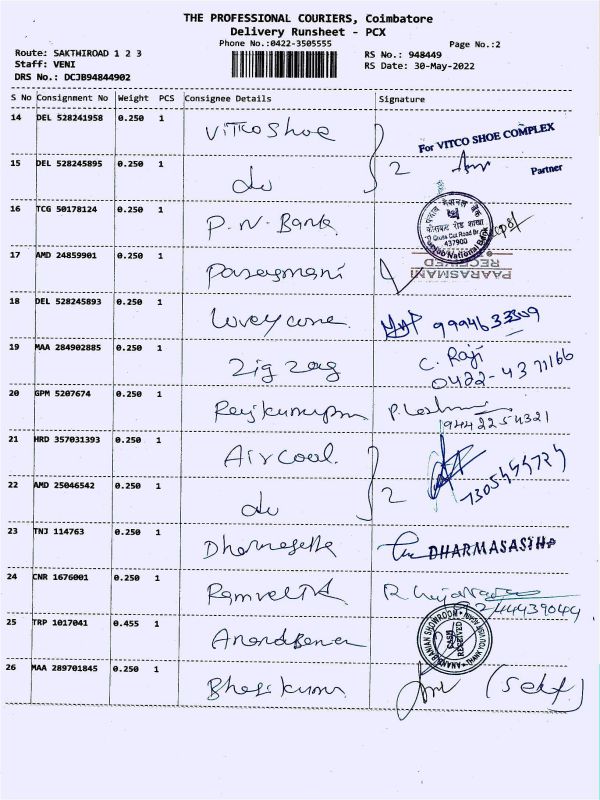 THE PROFESSIONAL COURIERS, Coimbatore
Delivery Runsheet - PCX
Phone No.:0422-3505555
Page No.:2
Route: SAKTHIROAD 1 2 3
Staff: VENI
DRS No.: DCJB94844902
RS No.: 948449
RS Date: 30-May-2022
S No Consignment No Weight PCS Consignee Details Signature
14 DEL 528241958 0.250 1 Vitco Shoe For VITCO SHOE COMPLEX
15 DEL 528245895 0.250 1 do 2 Partner
16 TCG 50178124 0.250 1 P. N. Bank
437900
Punjab National Bank
17 AMD 24859901 0.250 1 Parasmani PAARASMANI RECEIVED
18 DEL 528245893 0.250 1 9994633309
19 MAA 284902885 0.250 1 Zig Zag C. Raji
0422-4371166
20 GPM 5207674 0.250 1
9442254321
21 HRD 357031393 0.250 1 Aircool.
22 AMD 25046542 0.250 1 do 2
23 TNJ 114763 0.250 1 DHARMASASTHA
24 CNR 1676001 0.250 1
244439044
25 TRP 1017041 0.455 1 ANAND RANIAN SHOWROOM
RECEIVED
26 MAA 289701845 0.250 1 (Self)